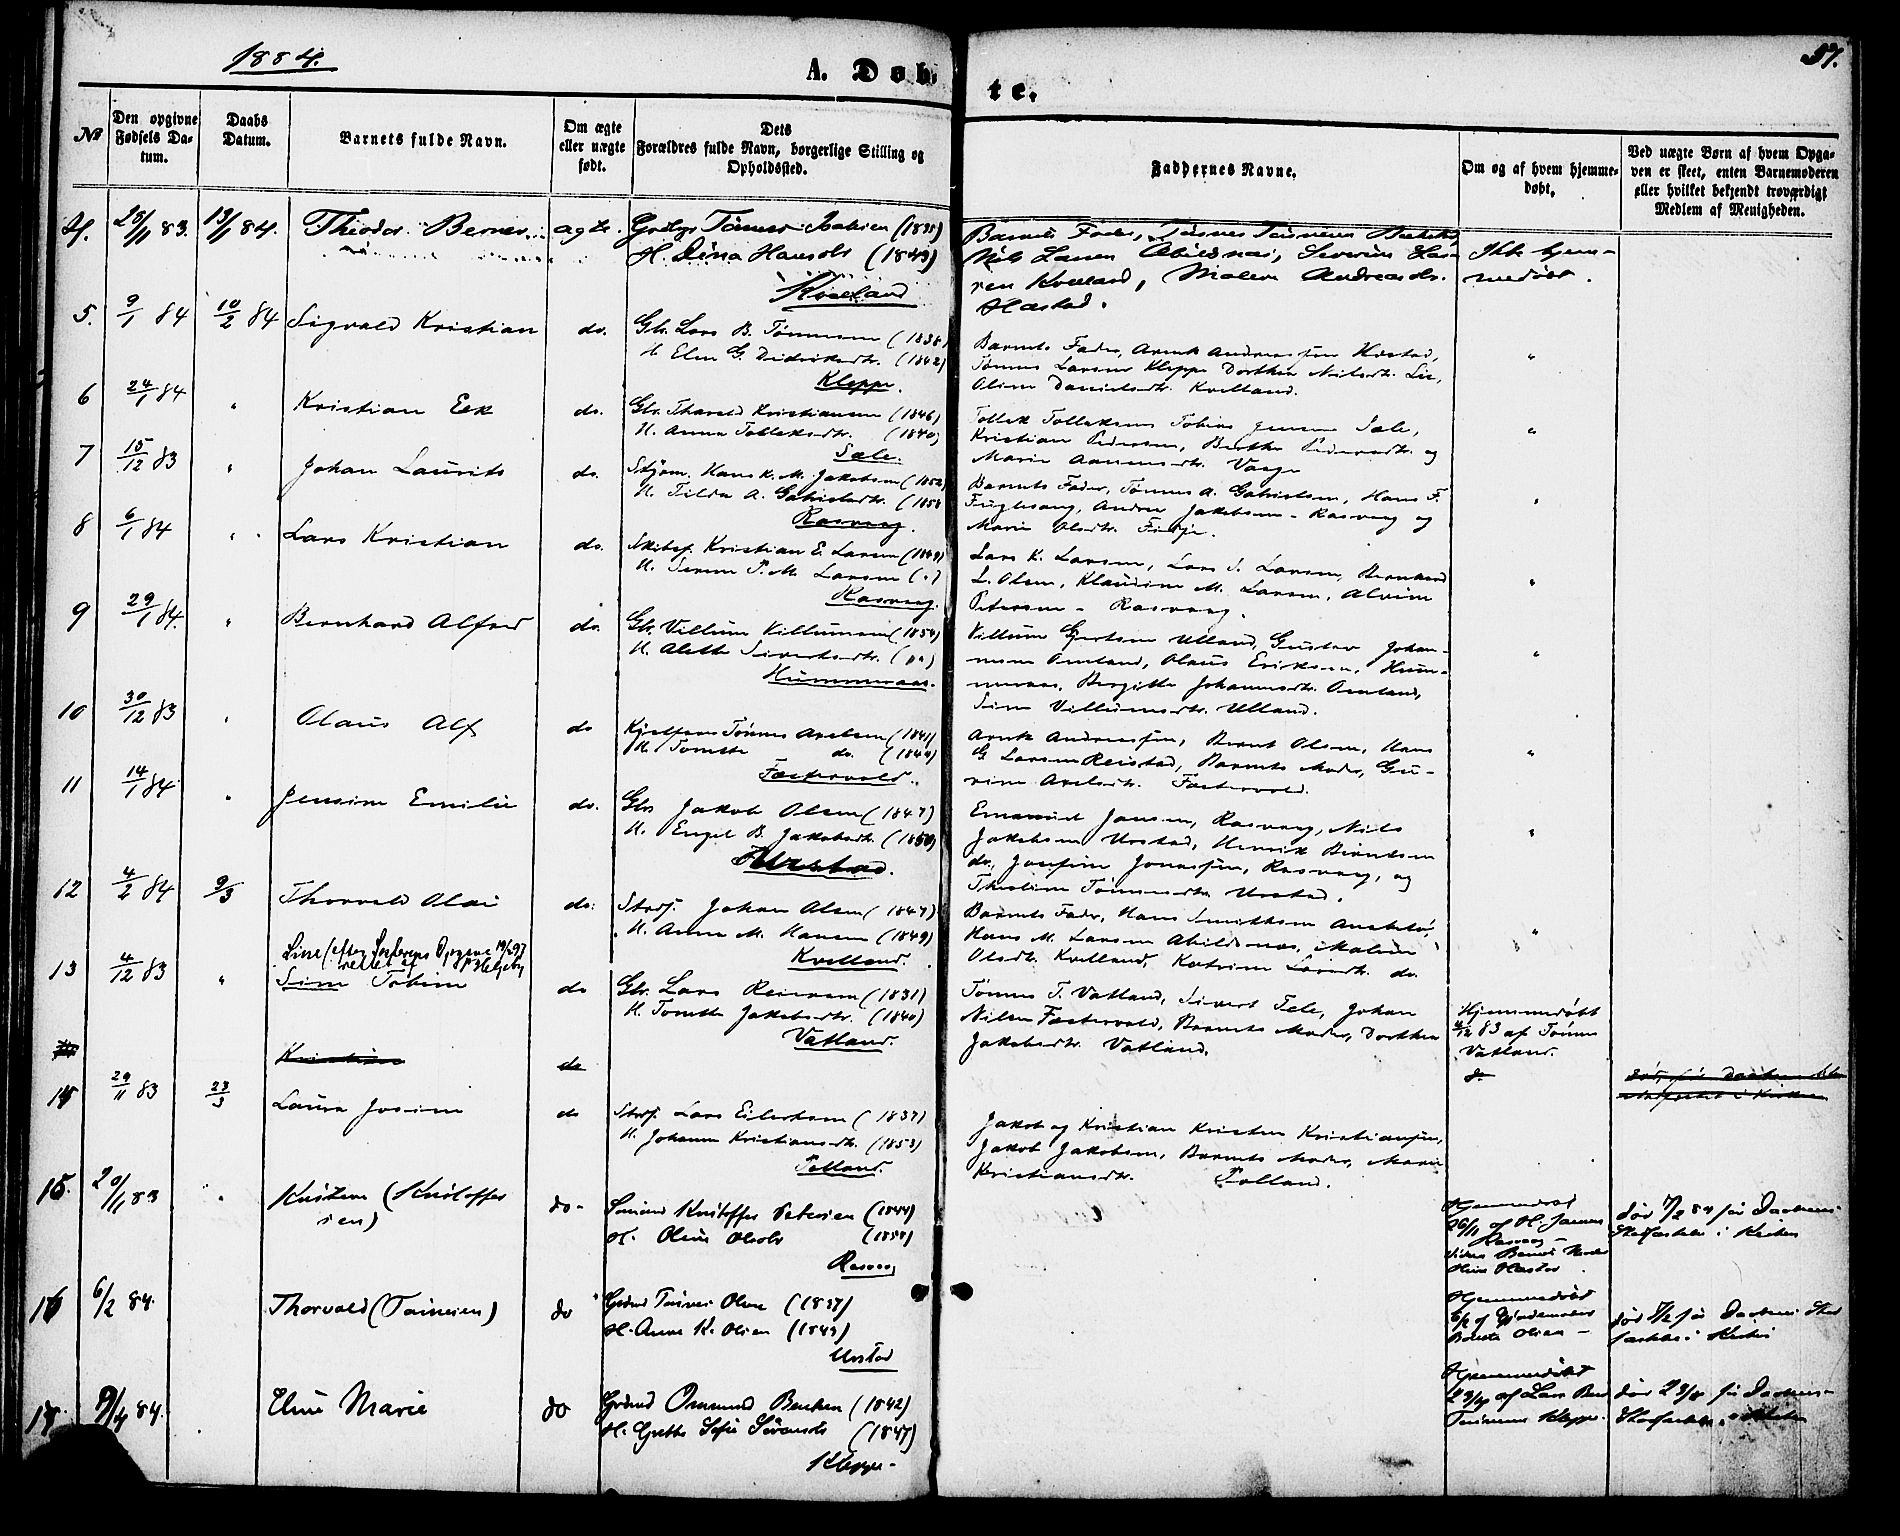 1884.
57.
A. Døb-
te.
No
Den opgivne Fødsels Datum.
Daabs Datum.
Barnets fulde Navn.
Om ægte eller uægte født.
Dets Forældres fulde Navn, borgerlige Stilling og Opholdssted.
Faddernes Navne.
Om og af hvem hjemmedøbt.
Ved uægte Børn af hvem Opgaven er skeet, enten Barnemoderen eller hvilket bekjendt troværdigt Medlem af Menigheden.
4. 83. 13/1 84. Theodor Berner ægte.
H. Dina Hansdtr (1843)
Kvelland
Barnets Fader,
Nils Larsen Abildnæs, Severin Lar-
sen Kvelland, Malene Andreasdtr.
Hæstad.
Ikke hjem-
medøbt.
5. 9/1 84 10/2 84 Sigvald Kristian do.
Gbr. Lars B. Tønnesen (1838)
H. Elen G. Didriksdtr. (1842)
Kleppe.
Barnets Fader, Arnt Andreassen Hæstad,
Tønnes Larsen Kleppe Dorthea Nilsdtr. Lie,
Oline Danielsdtr. Kvelland.
6 24/1 84 " Kristian Eek do.
Gbr. Tharald Kristiansen (1846)
H. Anna Tolleksdtr. (1840)
Sæle.
Tollek Tolleksen Tobias Jensen Sæle,
Kristian Pedersen, Berthe Pedersdtr. og
Marie
7 15/12 83 " Johan Laurits do.
Hans K. M. Jakobsen (1852)
H. Tilda A. Gabrielsdtr. (1858
Rasvaag.
Barnets Fader, Tønnes A. Gabrielsen, Hans F.
Fuglesang, Andrea Jakobsen - Rasvaag og
Marie Olsdtr.
8 6/1 84 " Lars Kristian do.
Skibsf. Kristian E. Larsen (1849)
H. Serene P. M. Larsen (")
Rasvaag.
Lars K. Larsen, Lars S. Larsen, Bernhard
L. Olsen, Klaudine M. Larsen, Alvine
Petersen - Rasvaag.
9 29/1 84. " Bernhard Alfred do.
Gbr. Villum Villumsen (1854)
H. Alette Sivertsdtr. (do)
Hummeraas.
Villum Gjertsen Ulland, Gustav Johan-
nesen Omland, Olaus Eriksen, Hum-
meraas, Bergitte Johannesdtr. Omland,
Sine Villumsdtr. Ulland.
10 30/12 83 " Olaus Alf do
Tønnes Axelsen (1841)
H. Tomette do. (1844)
Fæstervold.
Arnt Andreassen, Bernt Olsen, Hans
G Larsen Reistad, Barnets Moder, Gu-
rine Axelsdtr. Fæstervold.
11 14/1 84 " Jensine Emilie do.
Gbr Jakob Olsen (1847)
H. Engel B. Jakobsdtr. (1850)
Urstad.
Emanuel Jansen, Rasvaag, Nils
Jakobsen Urstad, Henrik Berntsen
do., Josefine Jonassen, Rasvaag, og
Thomine Tønnesdtr. Urstad.
12 4/2 84 9/3 Thorvald Olai do.
Strdf. Johan Olsen (1847)
H. Anna M. Hansen (1849)
Kvelland.
Barnets Fader, Hans Smithsen
Hans M. Larsen Abildsnæs, Maline
Olsdtr. Kvelland, Katrine Larsdtr. do.
13 4/12 83 " Line (efter
Sine Tobine do
Gbr. Lars Reiersen (1831)
H. Tomette Jakobsdtr. (1840)
Vatland.
Tønnes T. Vatland, Sivert Tele, Johan
Nilsen Fæstervold, Barnets Moder, Dorthea
Jakobsdtr. Vatland.
Hjemmedøbt
4/12 83 af Tønnes
Vatland.
Kristine do
14 29/11 83 23/3 Laura Josine do
Strdf. Lars Eilertsen (1837)
H. Johanne Kristiansdtr. (1853)
Polland.
Jakob og Kristian Kristen Kristiansen,
Jakob Jakobsen, Barnets Moder, Marie
Kristiansdtr. Polland.
15. 83 " Kristine (Kristoffer
sen) do-
Sømand Kristoffer Petersen (1844)
H. Oline Olsdtr (1858)
Rasvaag
Hjemmedøbt
26/11 af H. Jansen
Rasvaag -
død 7/2 84 før Daabens
Stadfæstelse i Kirken
16 6/2 84. Thorvald (Tønnesen) do
Grdmd Tønnes Olsen (1837)
H. Anne K. Olsen (1843)
Urstad
Hjemmedøbt
6/2 af Gjordemoder
Berte Olsen -
død 7/2 før Daabens Stad
fæstelse i Kirken
17. 9/4 84. Eline Marie do
Grdmd Ommund Bentsen (1842)
H. Grethe Sofie Sørensdtr (1847)
Kleppe-
Hjemmedøbt
23/4 af Lars
Tønnesen Kleppe.
død 23/8 før Daabens-
Stadfæstelse i Kirken